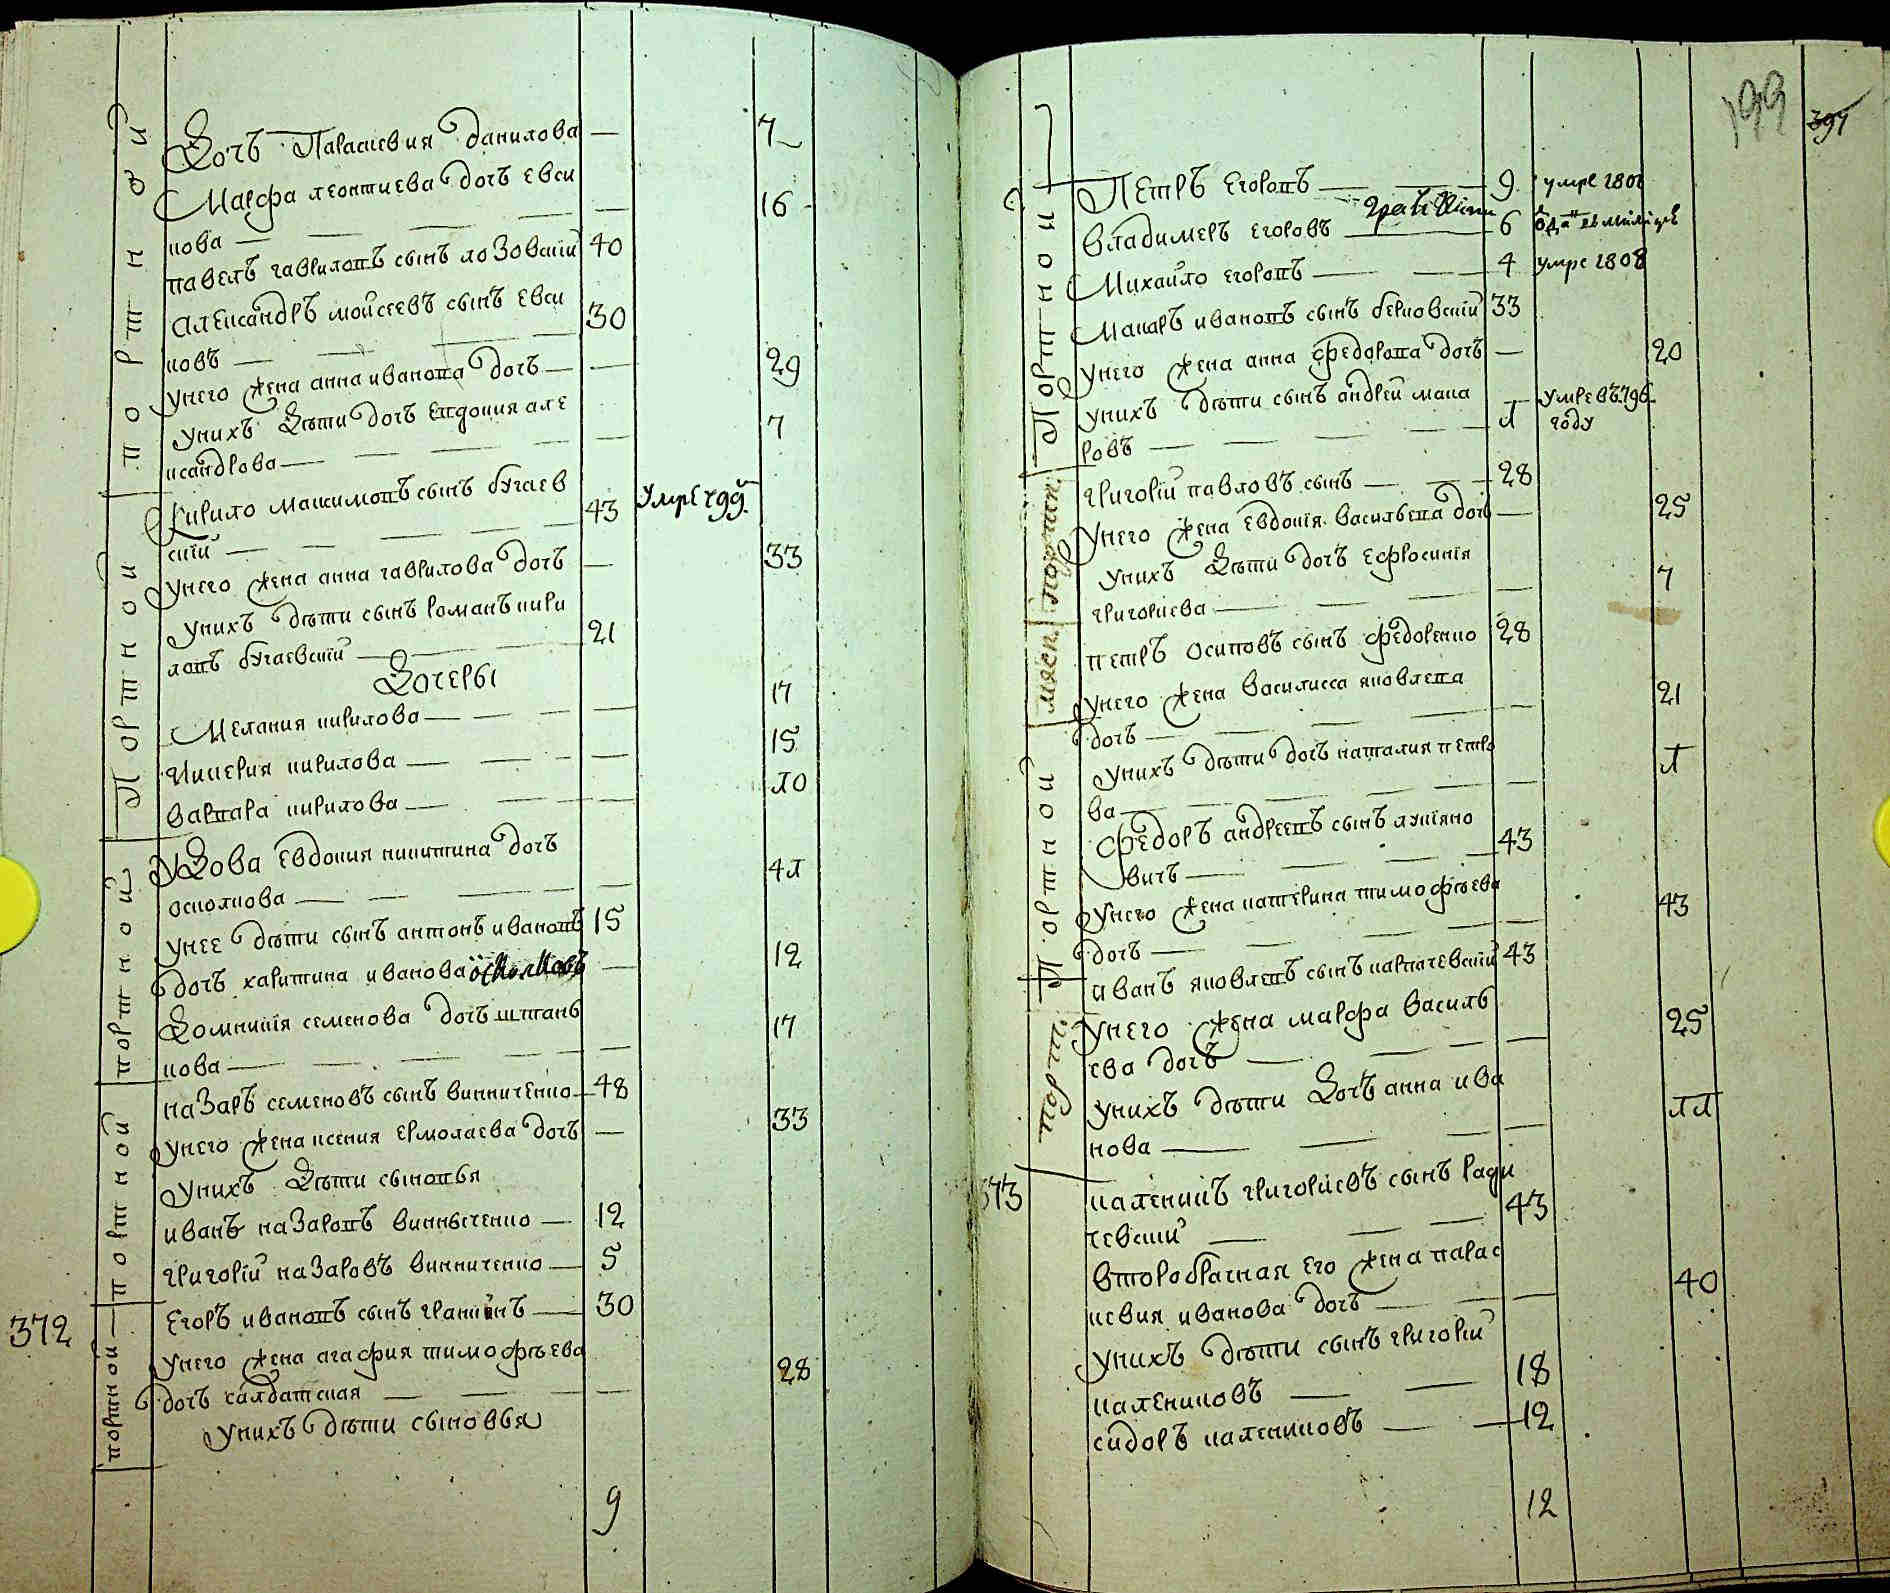 портной
Дочъ Параскевия Данилова — 7
Марфа леонтиева дочъ евси
кова — 16
павелъ гавриловъ сынъ лозовский 40
Александръ мойсеевъ сынъ евси
ковъ — 30
унего жена анна иванова дочъ — 29
унихъ Дѣти дочъ Евдокия але
ксандрова — 7
портной
Кирило максимовъ сынъ бугаев
ский — 43 умре 799
унего жена анна гаврилова дочъ — 33
унихъ дѣти сынъ романъ кири
ловъ бугаевский — 21
Дочеры
Мелания кирилова — 17
Кикерия кирилова — 15
варвара кирилова — 10
портной
Удова евдокия никитина дочъ
осколкова — 41
унее дѣти сынъ антонъ ивановъ 15
дочъ харитина иванова осколковъ — 12
Домникия семенова дочъ штгань
кова — 17
портной
назаръ семеновъ сынъ винниченко — 48
унего жена ксения ермолаева дочъ — 33
унихъ Дѣти сыновья
иванъ назаровъ винныченко — 12
григорий назаровъ винниченко — 5
372
портной
Егоръ ивановъ сынъ граникинъ — 30
унего жена агафия тимофѣева
дочъ салдатская — 28
унихъ дѣти сыновья
9
199
397
портной
Петръ егоровъ — 9 умре 1808
владимеръ егоровъ — 6
Михайло егоровъ — 4 умре 1808
Макаръ ивановъ сынъ берковский 33
унего жена анна федорова дочъ — 20
унихъ дѣти сынъ андрей мака
ровъ — 1 умре въ 796
году
портн.
григорий павловъ сынъ — 28
унего жена евдокия васильева дочь — 25
унихъ Дѣти дочъ ефросиния
григориева — 7
мясн.
петръ осиповъ сынъ федоренко 28
унего жена василисса яковлева
дочъ — 21
унихъ дѣти дочъ наталия петро
ва — 1
портной
Федоръ андреевъ сынъ лукияно
вичъ — 43
унего жена катерина тимофѣева
дочъ — 43
портн.
иванъ яковлевъ сынъ карпачевский 43
унего жена марфа василь
ева дочъ — 25
унихъ дѣти Дочъ анна ива
нова — 11
373
каленикъ григориевъ сынъ ради
чевский — 43
второбрачная его жена парас
кевия иванова дочъ — 40
унихъ дѣти сынъ григорий
калениковъ — 18
сидоръ калениковъ — 12
12